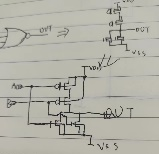 OUT
⇒
OUT
VSS
VDD
A
B
OUT
VSS